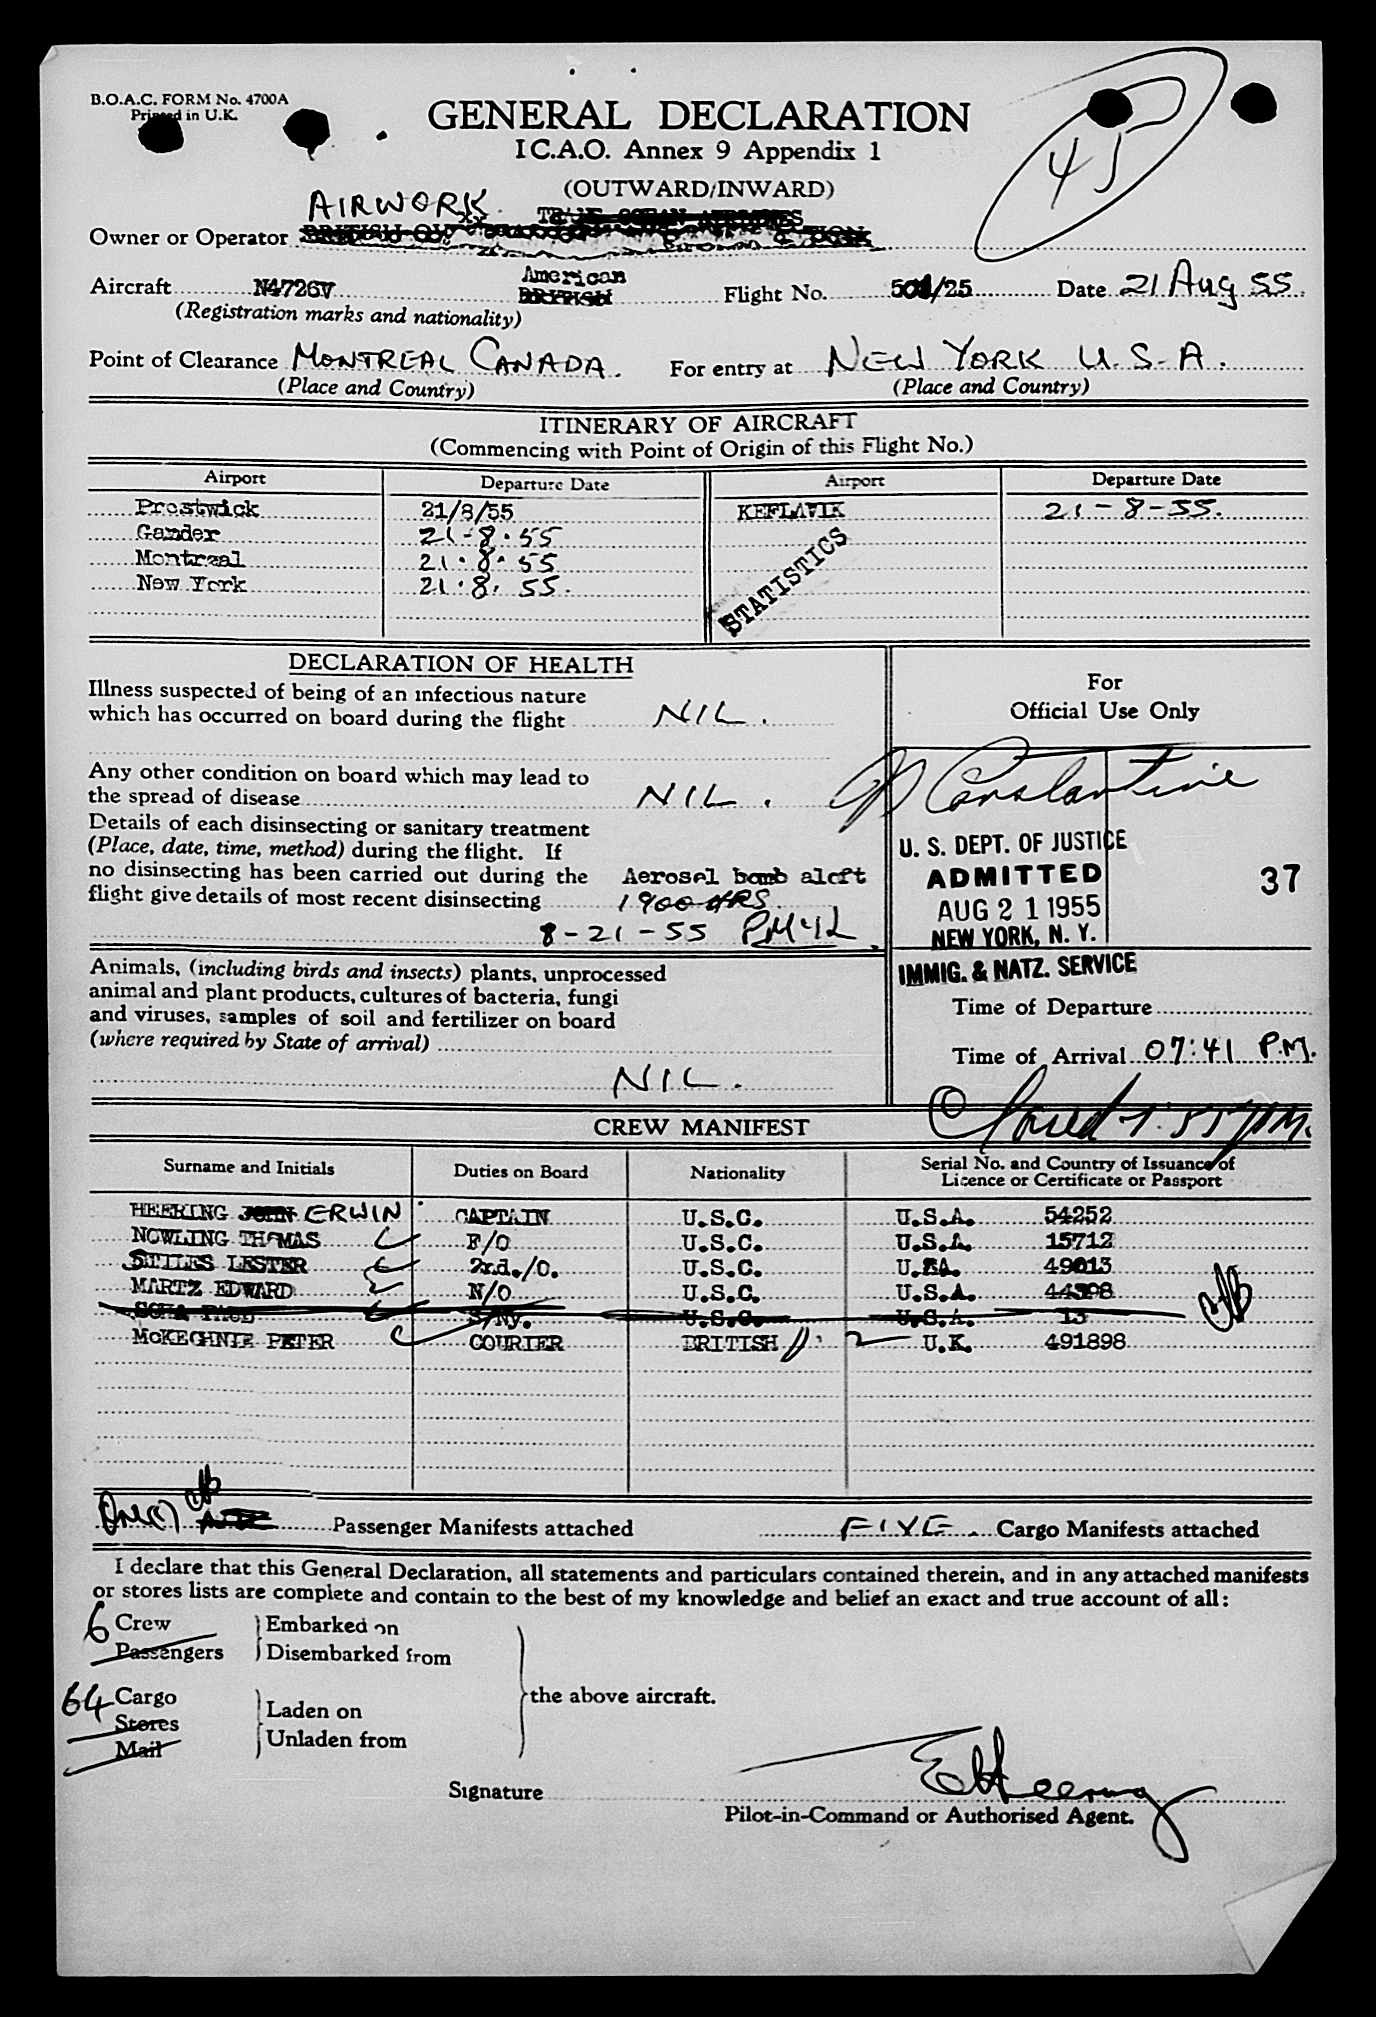 B.O.A.C. FORM No. 4700A
Printed in U.K.
GENERAL DECLARATION
I C.A.O. Annex 9 Appendix 1
45
(OUTWARD/INWARD)
AIRWORK
Owner or Operator
American
Aircraft N4726V BRITISH Flight No. /25 Date 21 Aug 55
(Registration marks and nationality)
Point of Clearance MONTREAL CANADA. For entry at NEW YORK U.S.A.
(Place and Country) (Place and Country)
ITINERARY OF AIRCRAFT
(Commencing with Point of Origin of this Flight No.)
Airport Departure Date Airport Departure Date
Prestwick 21/8/55 KEFLAVIK 21-8-55.
Gander 21-8.55
Montreal 21.8.55
New York 21.8.55.
STATISTICS
DECLARATION OF HEALTH
Illness suspected of being of an infectious nature
which has occurred on board during the flight NIL.
Any other condition on board which may lead to
the spread of disease NIL.
Details of each disinsecting or sanitary treatment
(Place, date, time, method) during the flight. If
no disinsecting has been carried out during the Aerosol bomb aloft
flight give details of most recent disinsecting 1900 HRS.
8-21-55
For
Official Use Only
Constantine
U. S. DEPT. OF JUSTICE
ADMITTED 37
AUG 21 1955
NEW YORK, N. Y.
IMMIG. & NATZ. SERVICE
Animals, (including birds and insects) plants, unprocessed
animal and plant products, cultures of bacteria, fungi
and viruses, samples of soil and fertilizer on board
(where required by State of arrival)
NIL.
Time of Departure
Time of Arrival 07:41 P.M.
CREW MANIFEST
Surname and Initials Duties on Board Nationality Serial No. and Country of Issuance of
Licence or Certificate or Passport
HEERING JOHN ERWIN CAPTAIN U.S.C. U.S.A. 54252
NOWLING THOMAS F/O U.S.C. U.S.A. 15712
STILES LESTER 2nd./O. U.S.C. U.SA. 49013
MARTZ EDWARD N/O U.S.C. U.S.A. 44398
S/Ny. U.S.C. U.S.A. 13
McKECHNIE PETER COURIER BRITISH U.K. 491898
Passenger Manifests attached FIVE. Cargo Manifests attached
I declare that this General Declaration, all statements and particulars contained therein, and in any attached manifests
or stores lists are complete and contain to the best of my knowledge and belief an exact and true account of all:
6 Crew Embarked on
Passengers Disembarked from
the above aircraft.
64 Cargo Laden on
Stores
Mail Unladen from
Signature E Heering
Pilot-in-Command or Authorised Agent.